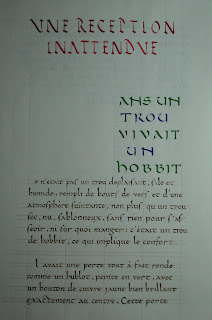 UNE RECEPTION
INATTENDUE
ANS UN
TROU
VIVAIT
UN
HOBBIT
e n'était pas un trou déplaisant, sale et
humide, rempli de bouts de vers et d'une
atmosphère suintante, non plus qu'un trou
sec, nu, sablonneux, sans rien pour s'as-
seoir, ni sur quoi manger: c'était un trou
de hobbit, ce qui implique le confort.
l avait une porte tout à fait ronde
comme un hublot, peinte en vert, avec
un bouton de cuivre jaune bien brillant
exactement au centre. Cette porte